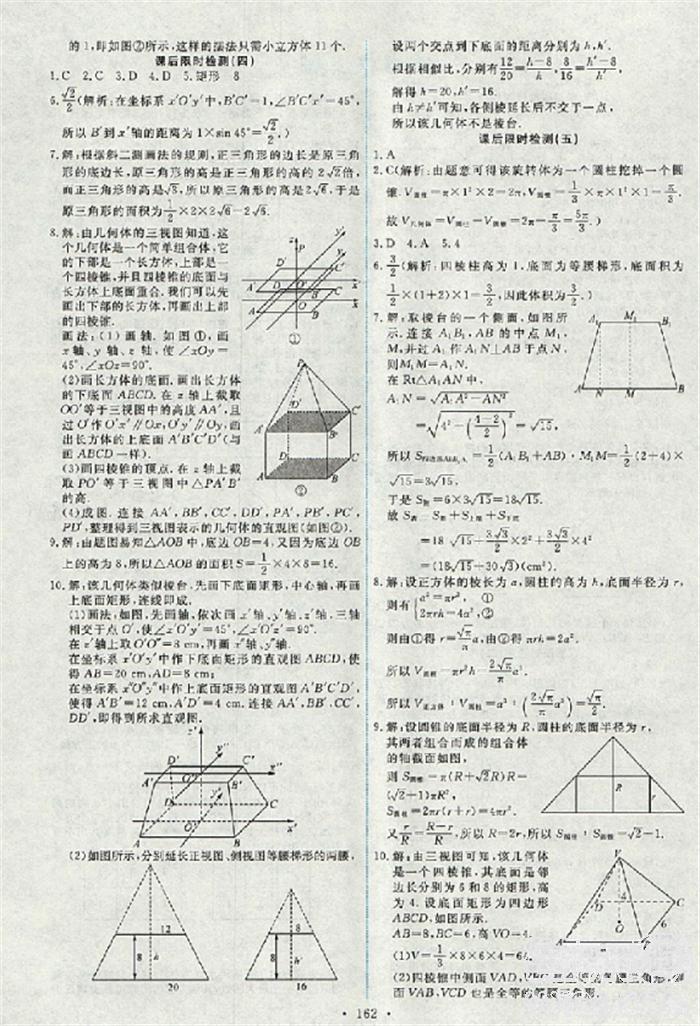 的1,即如图②所示,这样的摆法只需小立方体11个.
课后限时检测(四)
1.C 2.C 3.D 4.D 5.矩形 8
6.√2/2(解析:在坐标系x′O′y′中,B′C′=1,∠B′C′x′=45°,
所以B′到x′轴的距离为1×sin 45°=√2/2.)
7.解:根据斜二测画法的规则,正三角形的边长是原三角
形的底边长,原三角形的高是正三角形的高的2√2倍,
而正三角形的高是√3,所以原三角形的高为2√6,于是
原三角形的面积为1/2×2×2√6=2√6.
8.解:由几何体的三视图知道,这
个几何体是一个简单组合体,它
的下部是一个长方体,上部是一
个四棱锥,并且四棱锥的底面与
长方体上底面重合.我们可以先
画出下部的长方体,再画出上部
的四棱锥.
画法:(1)画轴.如图①,画
x轴、y轴、z轴,使∠xOy=
45°,∠xOz=90°.
①
(2)画长方体的底面.画出长方体
的下底面ABCD,在z轴上截取
OO′等于三视图中的高度AA′,且
过O′作O′x′∥Ox,O′y′∥Oy,画
出长方体的上底面A′B′C′D′(与
画ABCD一样).
(3)画四棱锥的顶点.在z轴上截
取PO′等于三视图中△PA′B′
的高.
②
(4)成图.连接AA′,BB′,CC′,DD′,PA′,PB′,PC′,
PD′,整理得到三视图表示的几何体的直观图(如图②).
9.解:由题图易知△AOB中,底边OB=4,又因为底边OB
上的高为8,所以△AOB的面积S=1/2×4×8=16.
10.解:该几何体类似棱台,先画下底面矩形,中心轴,再画
上底面矩形,连线即成.
(1)画法:如图,先画轴,依次画x′轴、y′轴、z′轴,三轴
相交于点O′,使∠x′O′y′=45°,∠x′O′z′=90°.
在z′轴上取O′O″=8 cm,再画x″轴、y″轴.
在坐标系x′O′y′中作下底面矩形的直观图ABCD,使
得AB=20 cm,AD=8 cm;
在坐标系x″O″y″中作上底面矩形的直观图A′B′C′D′,
使得A′B′=12 cm,A′D′=4 cm.连接AA′,BB′,CC′,
DD′,即得到所求直观图.
(2)如图所示,分别延长正视图、侧视图等腰梯形的两腰,
12
8
h
20
8
8
h′
16
设两个交点到下底面的距离分别为h,h′.
根据相似比,分别有12/20=(h-8)/h,8/16=(h′-8)/h′,
解得h=20,h′=16.
由h≠h′可知,各侧棱延长后不交于一点,
所以该几何体不是棱台.
课后限时检测(五)
1.A
2.C(解析:由题意可得该旋转体为一个圆柱挖掉一个圆
锥.V圆柱=π×1²×2=2π,V圆锥=1/3×π×1²×1=π/3.
故V几何体=V圆柱-V圆锥=2π-π/3=5π/3.)
3.D 4.A 5.4
6.3/2(解析:四棱柱高为1,底面为等腰梯形,底面积为
1/2×(1+2)×1=3/2,因此体积为3/2.)
7.解:取棱台的一个侧面,如图所
示.连接A₁B₁,AB的中点M₁,
M,并过A₁作A₁N⊥AB于点N,
则M₁M=A₁N.
在Rt△A₁AN中,
A₁N=√(A₁A²-AN²)
=√(4²-((4-2)/2)²)=√15,
所以S四边形ABB₁A₁=1/2(A₁B₁+AB)·M₁M=1/2(2+4)×
√15=3√15.
于是S侧=6×3√15=18√15.
故S表=S侧+S上底+S下底
=18√15+3√3/2×2²+3√3/2×4²
=(18√15+30√3)(cm²).
8.解:设正方体的棱长为a,圆柱的高为h,底面半径为r,
则有{a²=πr², ①
2πrh=4a², ②
则由①得r=√π/π a,由②得πrh=2a².
所以V圆柱=πr²h=2√π/π a³.
所以V正方体∶V圆柱=a³∶(2√π/π a³)=√π/2.
9.解:设圆锥的底面半径为R,圆柱的底面半径为r,
其两者组合而成的组合体
的轴截面如图,
则S圆锥=π(R+√2R)R=
(√2+1)πR²,
S圆柱=2πr(r+r)=4πr².
又r/R=(R-r)/R,所以R=2r,所以S圆锥∶S圆柱=√2+1.
10.解:由三视图可知,该几何体
是一个四棱锥,其底面是邻
边长分别为6和8的矩形,高
为4.设底面矩形为四边形
ABCD,如图所示.
AB=8,BC=6,高VO=4.
(1)V=1/3×8×6×4=64.
(2)四棱锥中侧面VAD,VBC是全等的等腰三角形,侧
面VAB,VCD也是全等的等腰三角形.
· 162 ·